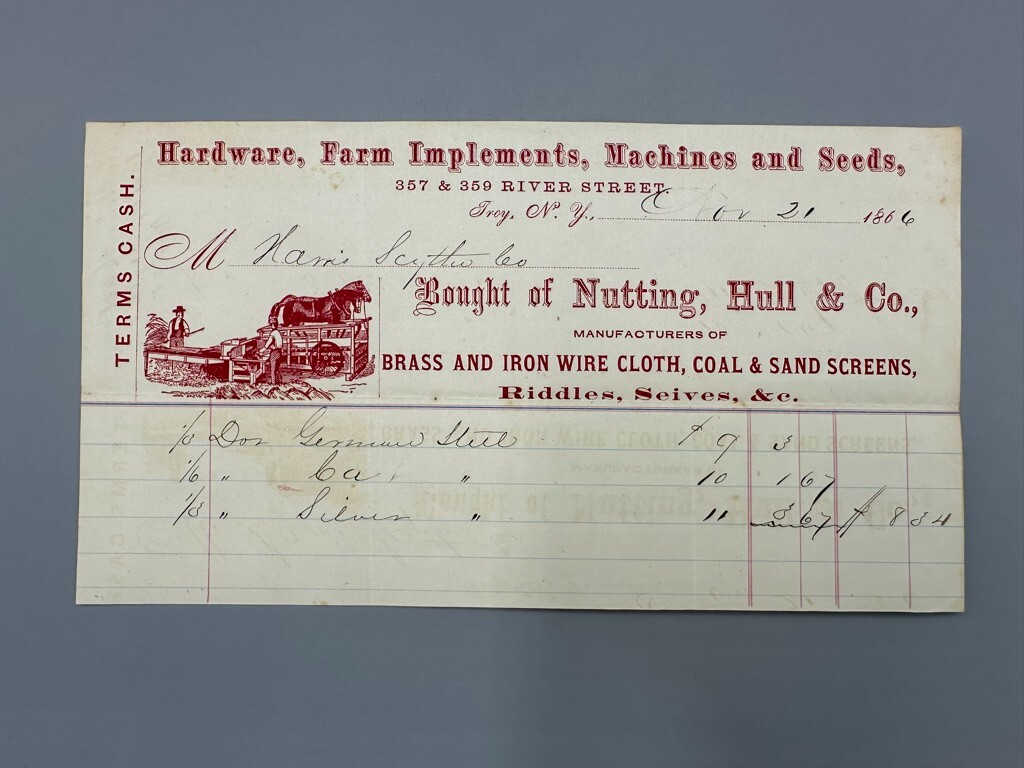 Hardware, Farm Implements, Machines and Seeds,
357 & 359 RIVER STREET.
Troy, N. Y., Nov 21 1866
TERMS CASH.
M Harris Scythe Co
Bought of Nutting, Hull & Co.,
MANUFACTURERS OF
BRASS AND IRON WIRE CLOTH, COAL & SAND SCREENS,
Riddles, Seives, &c.
1/3 Doz German Steel $9 3
1/6 " Ca " 10 1 67
1/3 " Silver " 11 3 67 $ 8 34